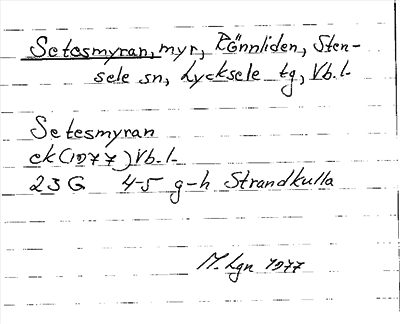 Setesmyran, myr, Rönnliden, Sten-
sele sn, Lycksele tg, Vb.l.
Setesmyran
ek (1977) Vb.l.
23 G 4-5 g-h Strandkulla
M. Lgn 1977